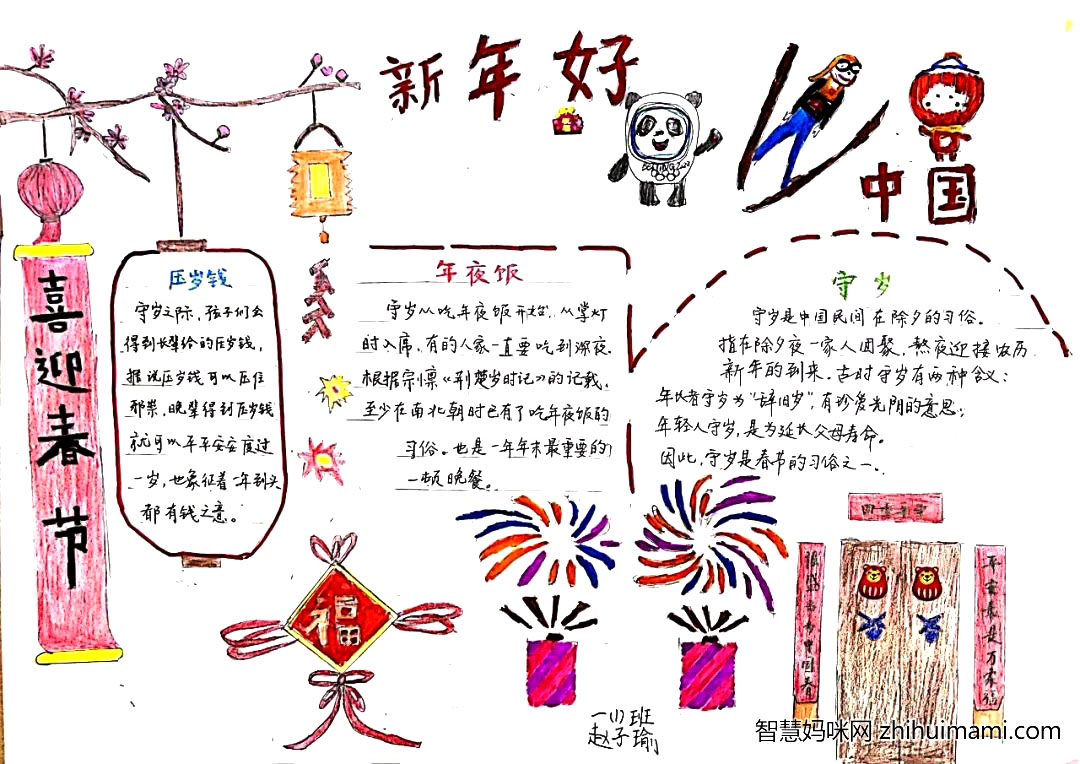 新年好
中国
喜迎春节
压岁钱
守岁之际，孩子们会
得到长辈给的压岁钱，
据说压岁钱可以压住
邪祟，晚辈得到压岁钱
就可以平平安安度过
一岁，也象征着一年到头
都有钱之意。
年夜饭
守岁从吃年夜饭开始，从掌灯
时入席，有的人家一直要吃到深夜。
根据宗懔《荆楚岁时记》的记载，
至少在南北朝时已有了吃年夜饭的
习俗。也是一年年末最重要的
一顿晚餐。
守岁
守岁是中国民间在除夕的习俗。
指在除夕夜一家人团聚，熬夜迎接农历
新年的到来。古时守岁有两种含义：
年长者守岁为“辞旧岁”，有珍爱光阴的意思；
年轻人守岁，是为延长父母寿命。
因此，守岁是春节的习俗之一。
福
平安喜是万来福
一(1)班
赵子瑜
智慧妈咪网 zhihuimami.com